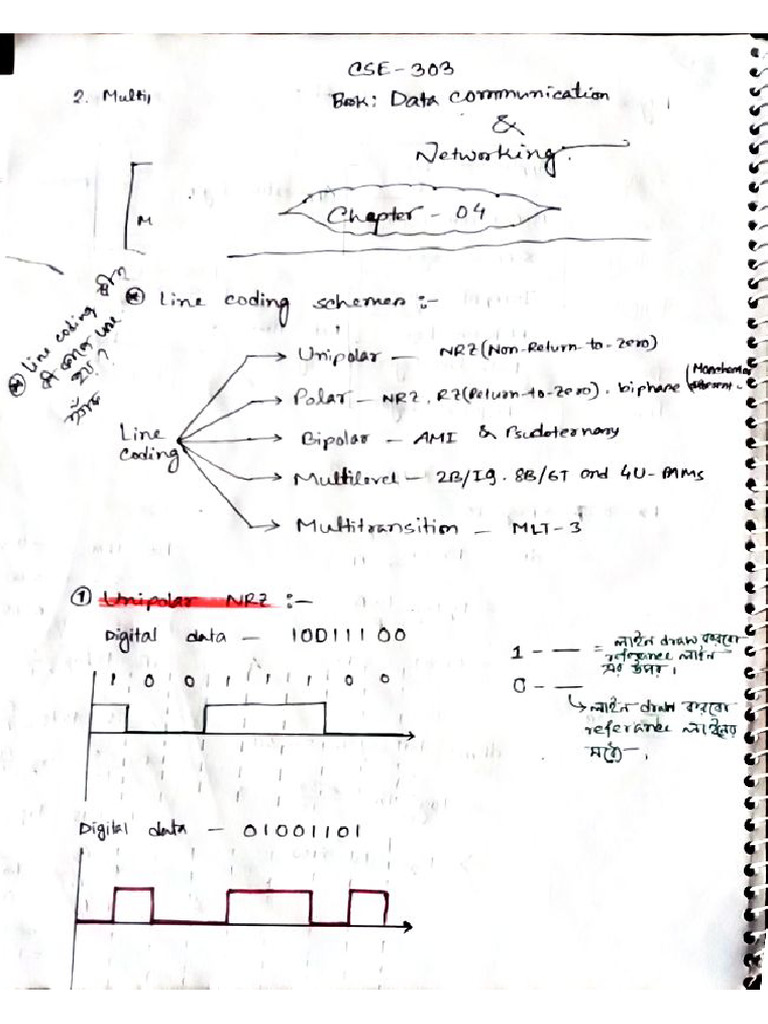 CSE-303
2. Multi,
Book: Data communication
&
Networking.
Chapter - 04
M
Line coding schemes :-
Line coding কি?
Unipolar — NRZ (Non-Return-to-Zero)
Polar — NRZ, RZ(Return-to-Zero), biphase (Manchester
Line
coding
Bipolar — AMI & Psudoternary
Multilevel — 2B/1Q. 8B/6T and 4U-PAMS
Multitransition — MLT-3
① Unipolar NRZ :—
Digital data — 10011100
1 0 0 1 1 1 0 0
1 - — = লাইন draw করবো
referance লাইন
এর উপর।
0 - —
লাইন draw করবো
referance লাইনের
Digital data — 01001101